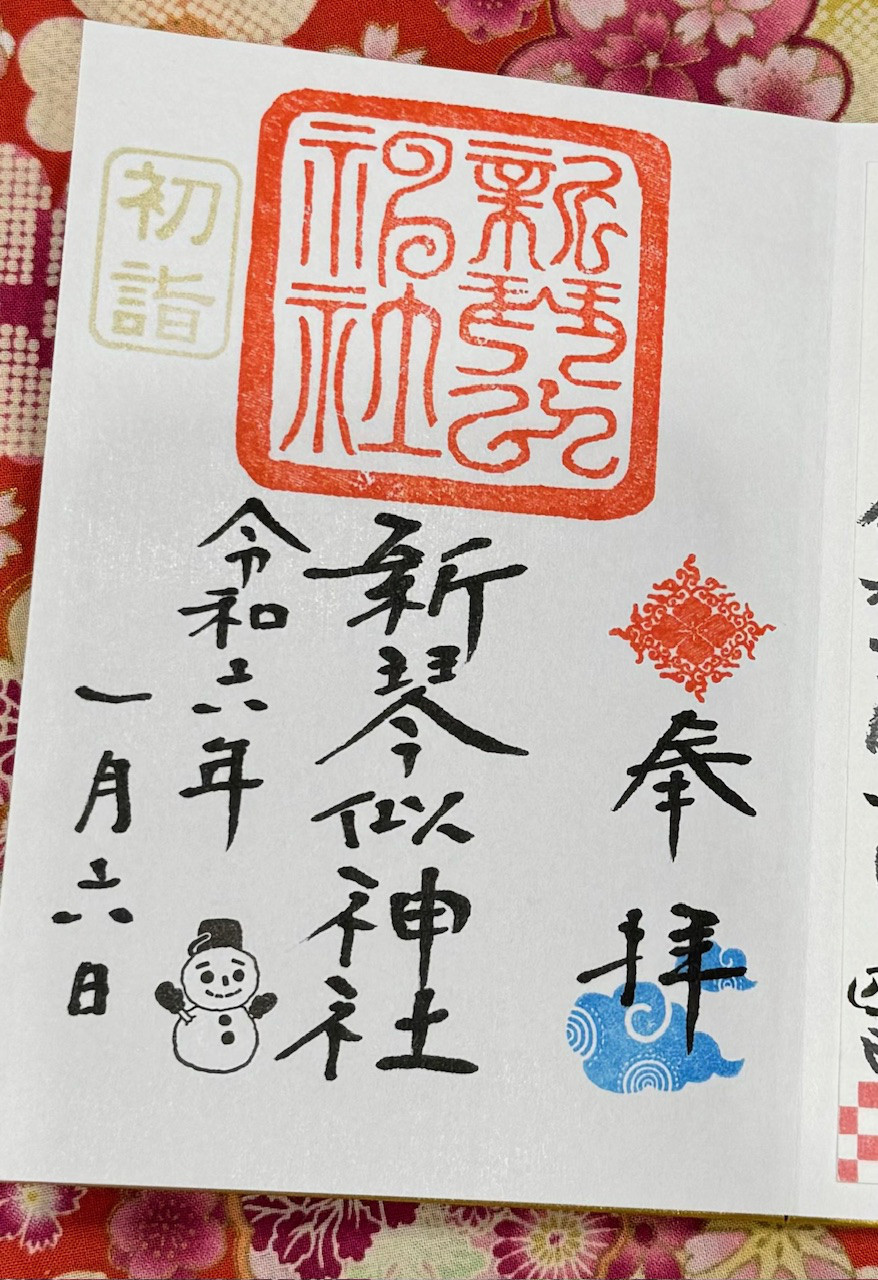 奉拝
新琴似神社
令和六年
一月六日
新琴似神社
初詣